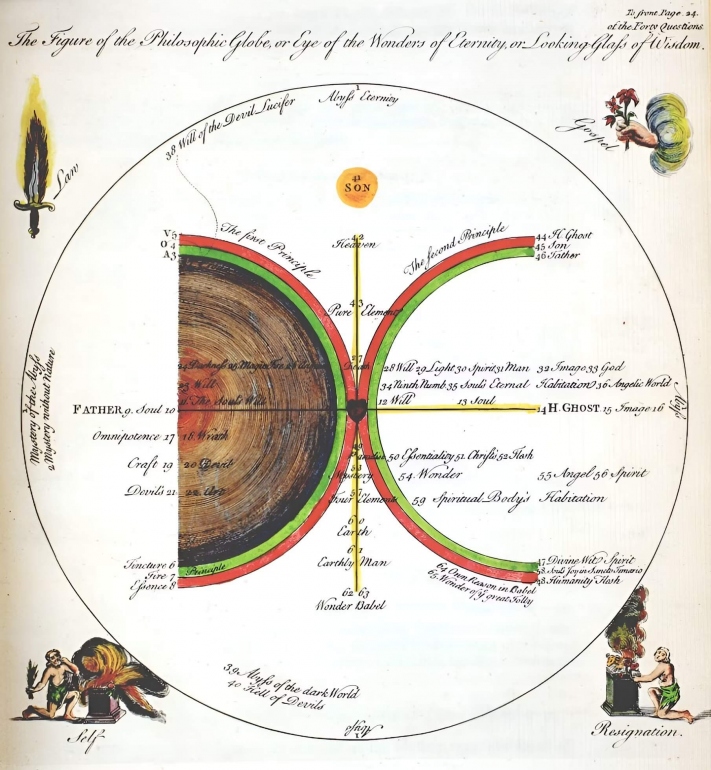 To front Page. 24.
of the Forty Questions
The Figure of the Philosophic Globe, or Eye of the Wonders of Eternity, or Looking-Glass of Wisdom.
Law
Gospel
1
Abyss Eternity
38 Will of the Devil Lucifer
41
SON
The first Principle
The second Principle
V 5
O 4
A 3
42
Heaven
44 H. Ghost
45 Son
46 Father
43
Pure Element
27
24 Darkness 25 Magic Fire 26
28 Will 29 Light 30 Spirit 31 Man 32 Image 33 God
23 Will
34 Ninth Numb. 35 Souls Eternal Habitation 36 Angelic World
11 The Souls Will
12 Will 13 Soul
FATHER 9. Soul 10
14 H. GHOST 15 Image 16
Mystery of the Abyss
2 Mystery without Nature
Abyss
Omnipotence 17 18 Wrath
49
Paradise 50 Essentiality 51 Christs 52 Flesh
Craft 19 20 Devil
53
Mystery
54. Wonder 55 Angel 56 Spirit
Devils 21 22 Art
57
Four Elements
59 Spiritual Body's Habitation
60
Earth
61
Earthly Man
Tincture 6
Fire 7
Essence 8
Principle
47 Divine Wit Spirit
48 Humanity Flesh
64 Own Reason in Babel
65. Wonder of y great Folly
62 63
Wonder Babel
39 Abyss of the dark World
40 Hell of Devils
Abyss
Self
Resignation.